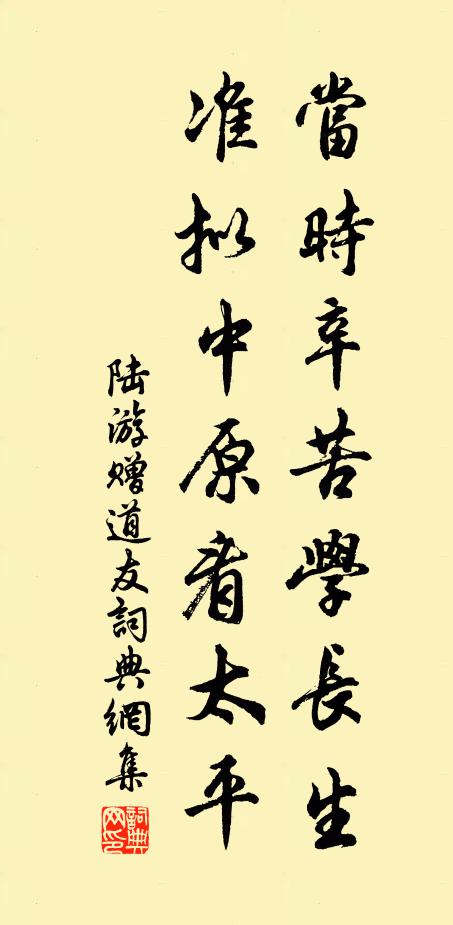 當時辛苦學長生
准拟中原看太平
陆游赠道友詞典網集
詞典网印